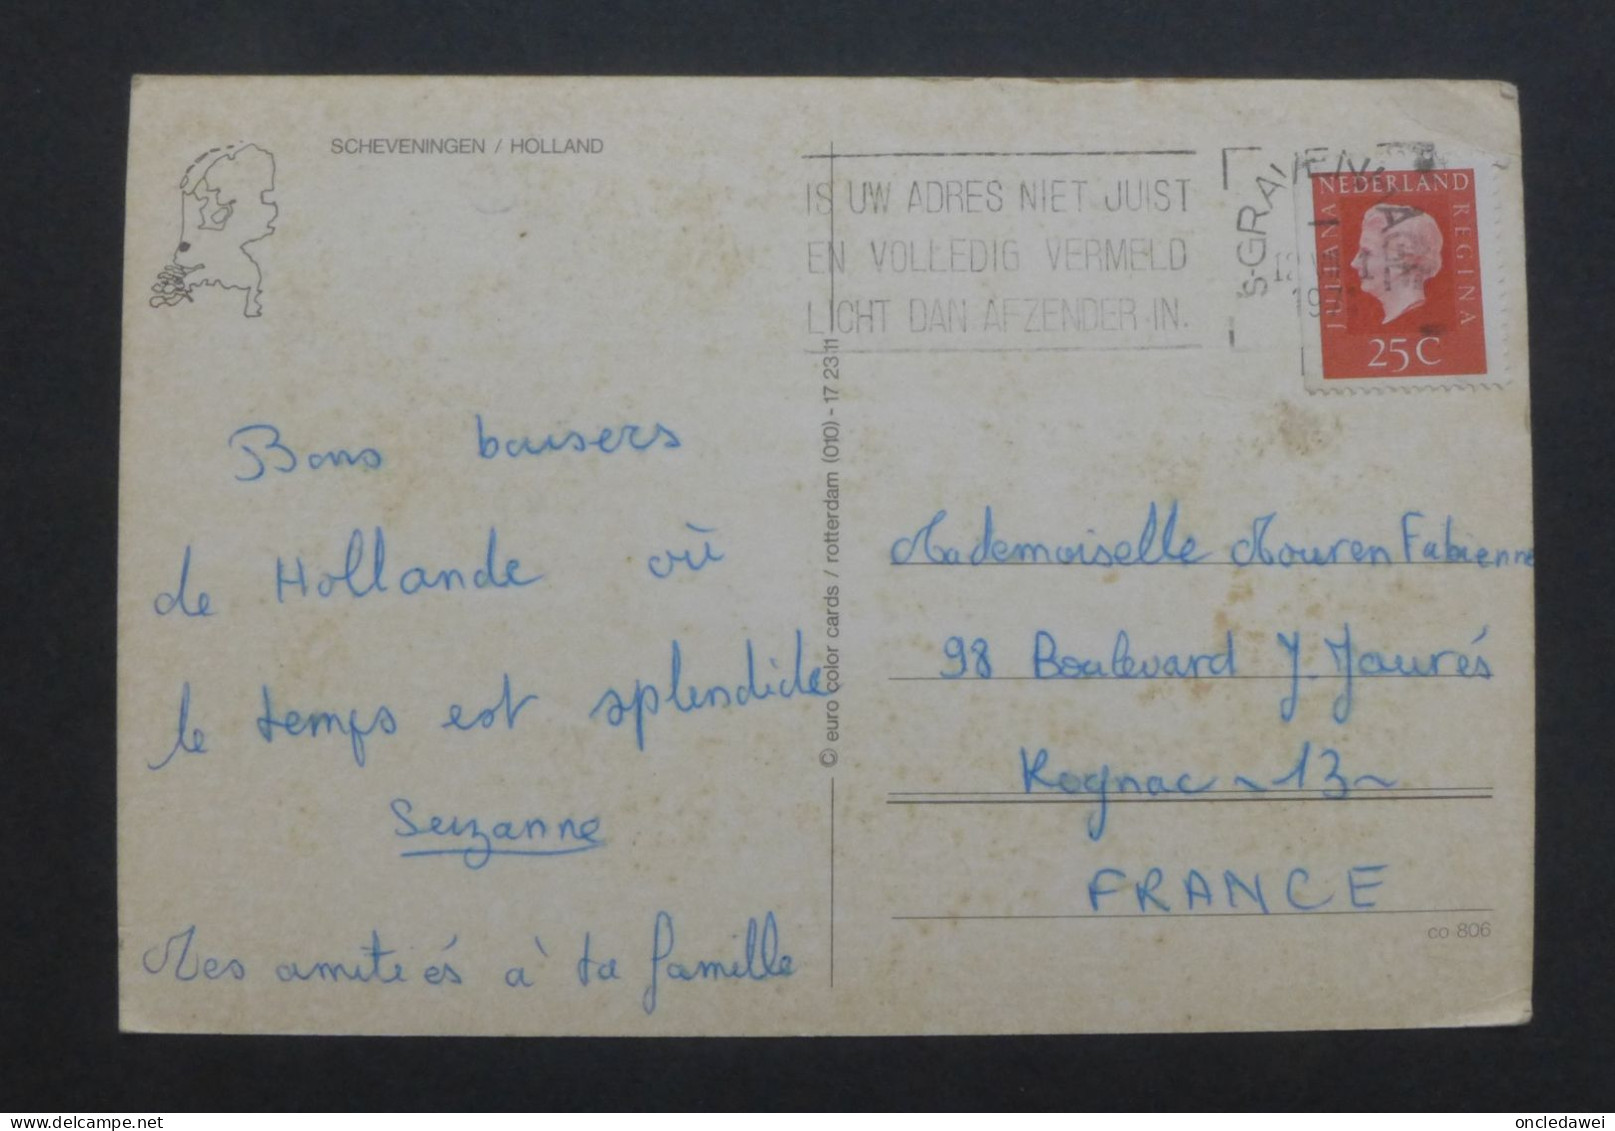 SCHEVENINGEN / HOLLAND
IS UW ADRES NIET JUIST
EN VOLLEDIG VERMELD
LICHT DAN AFZENDER IN.
NEDERLAND
JULIANA
REGINA
25C
Bons baisers
de Hollande où
le temps est splendide
Suzanne
Mes amitiés à ta famille
© euro color cards / rotterdam (010) - 17 23 11
Mademoiselle Mouren Fabienne
98 Boulevard J. Jaurés
Rognac - 13 -
FRANCE
co 806
delcampe.net
oncledawei